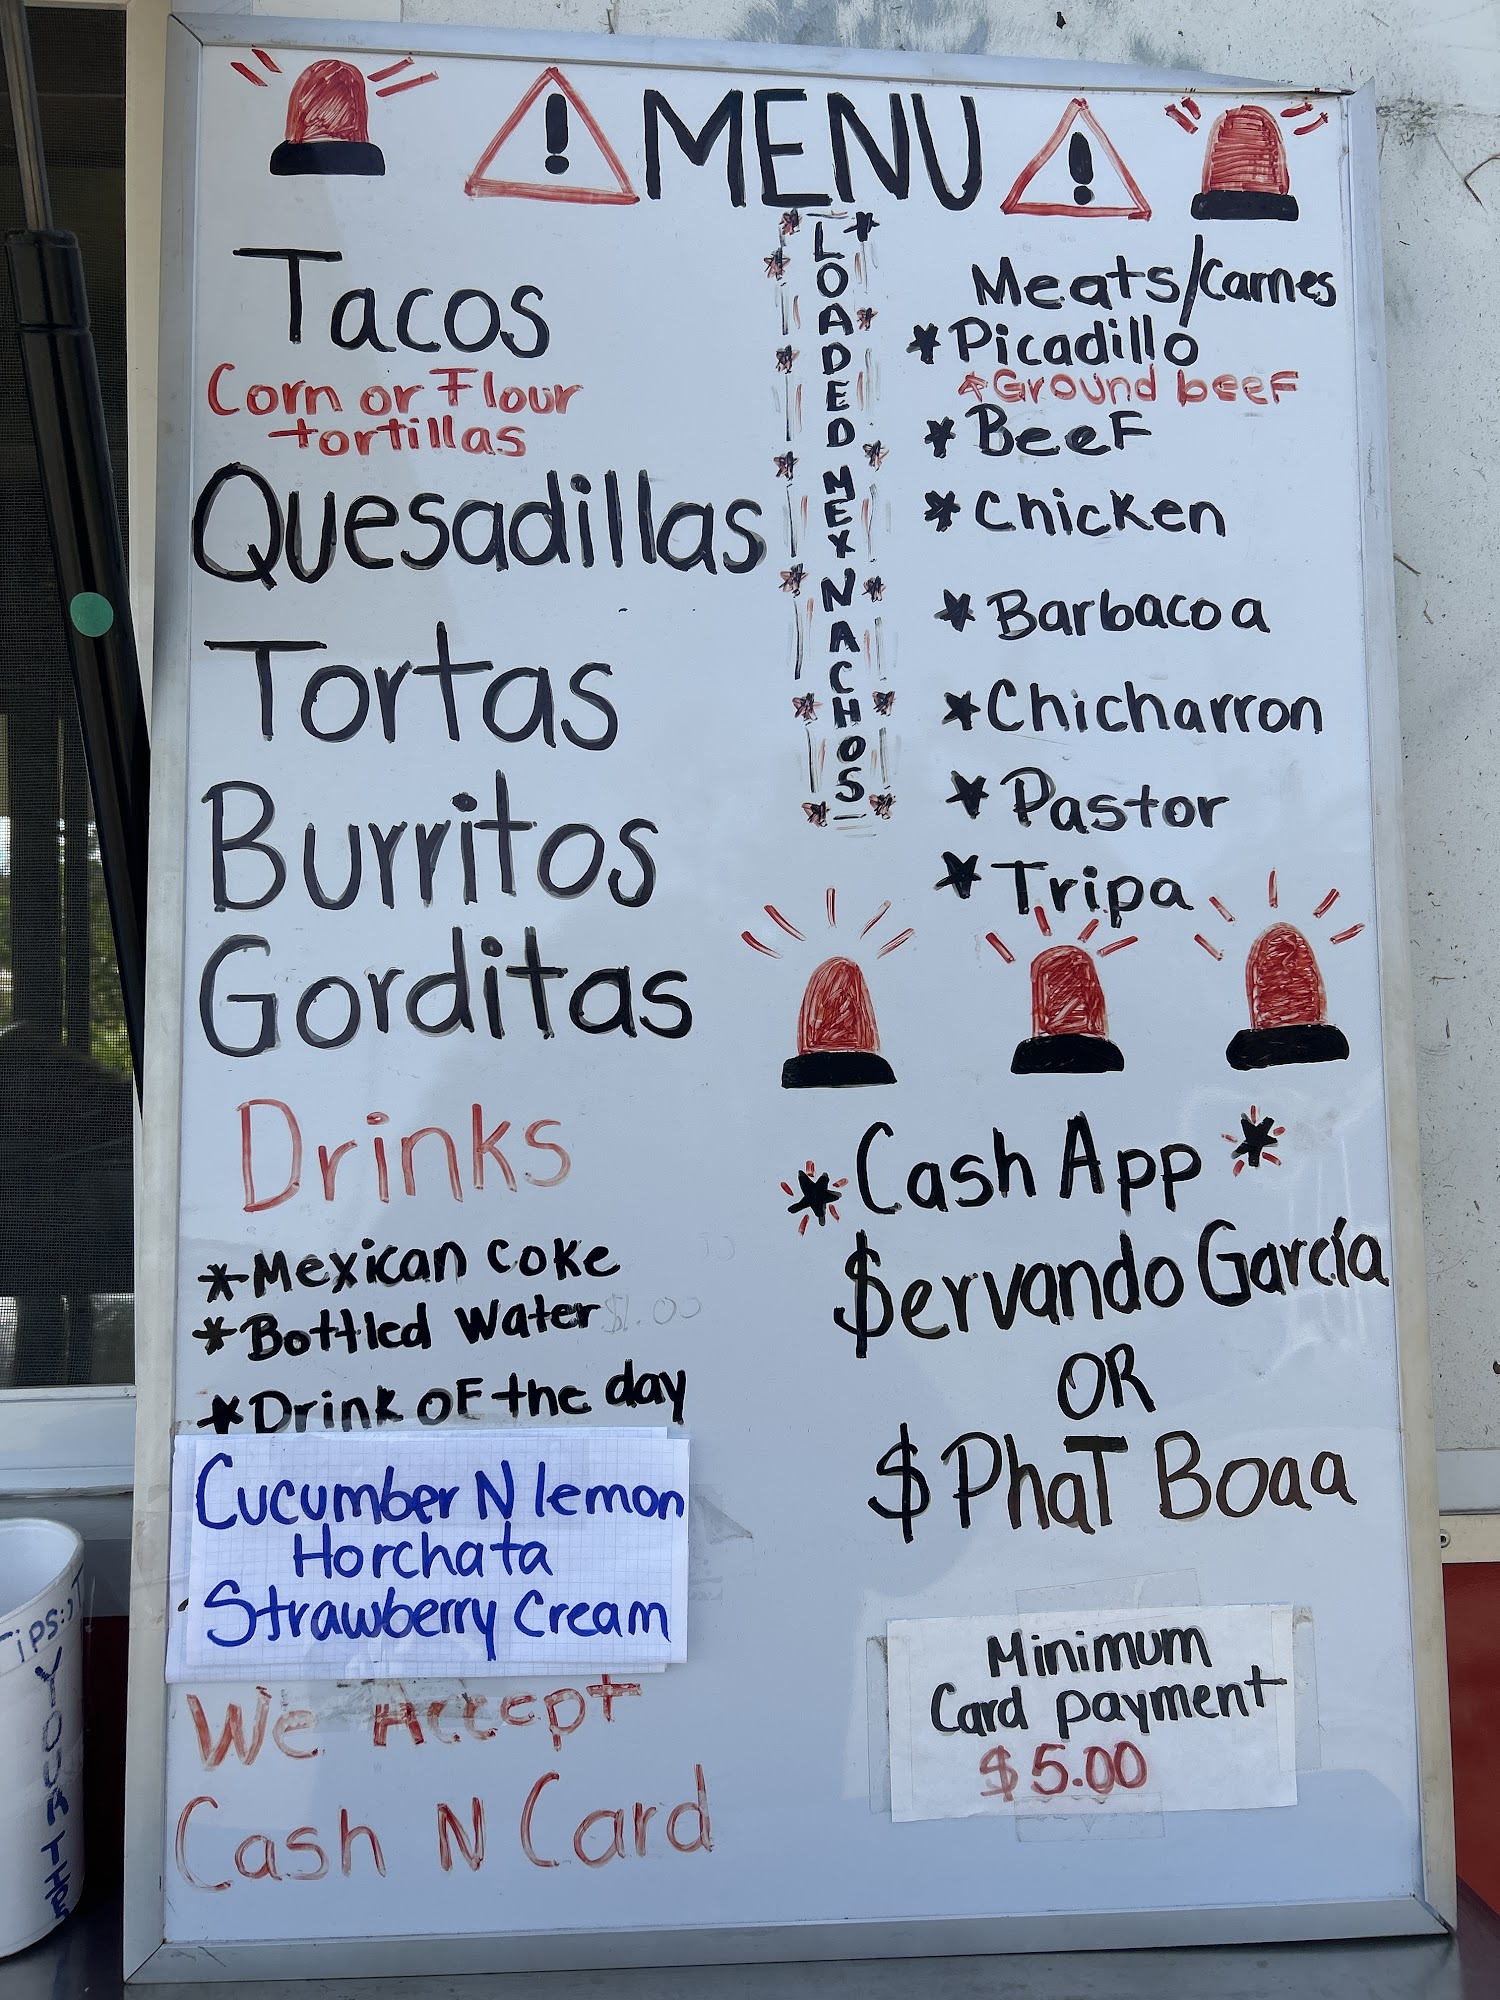 MENU
Tacos
Corn or Flour
tortillas
Quesadillas
Tortas
Burritos
Gorditas
LOADED MEX NACHOS
Meats/Carnes
*Picadillo
*Ground beef
*Beef
*Chicken
*Barbacoa
*Chicharron
*Pastor
*Tripa
Drinks
*Mexican Coke
*Bottled Water $1.00
*Drink of the day
Cucumber N lemon
Horchata
Strawberry Cream
We Accept
Cash N Card
*Cash App*
$ervando García
OR
$PhaT Boaa
Minimum
Card payment
$5.00
Tips:)
YOUR THE